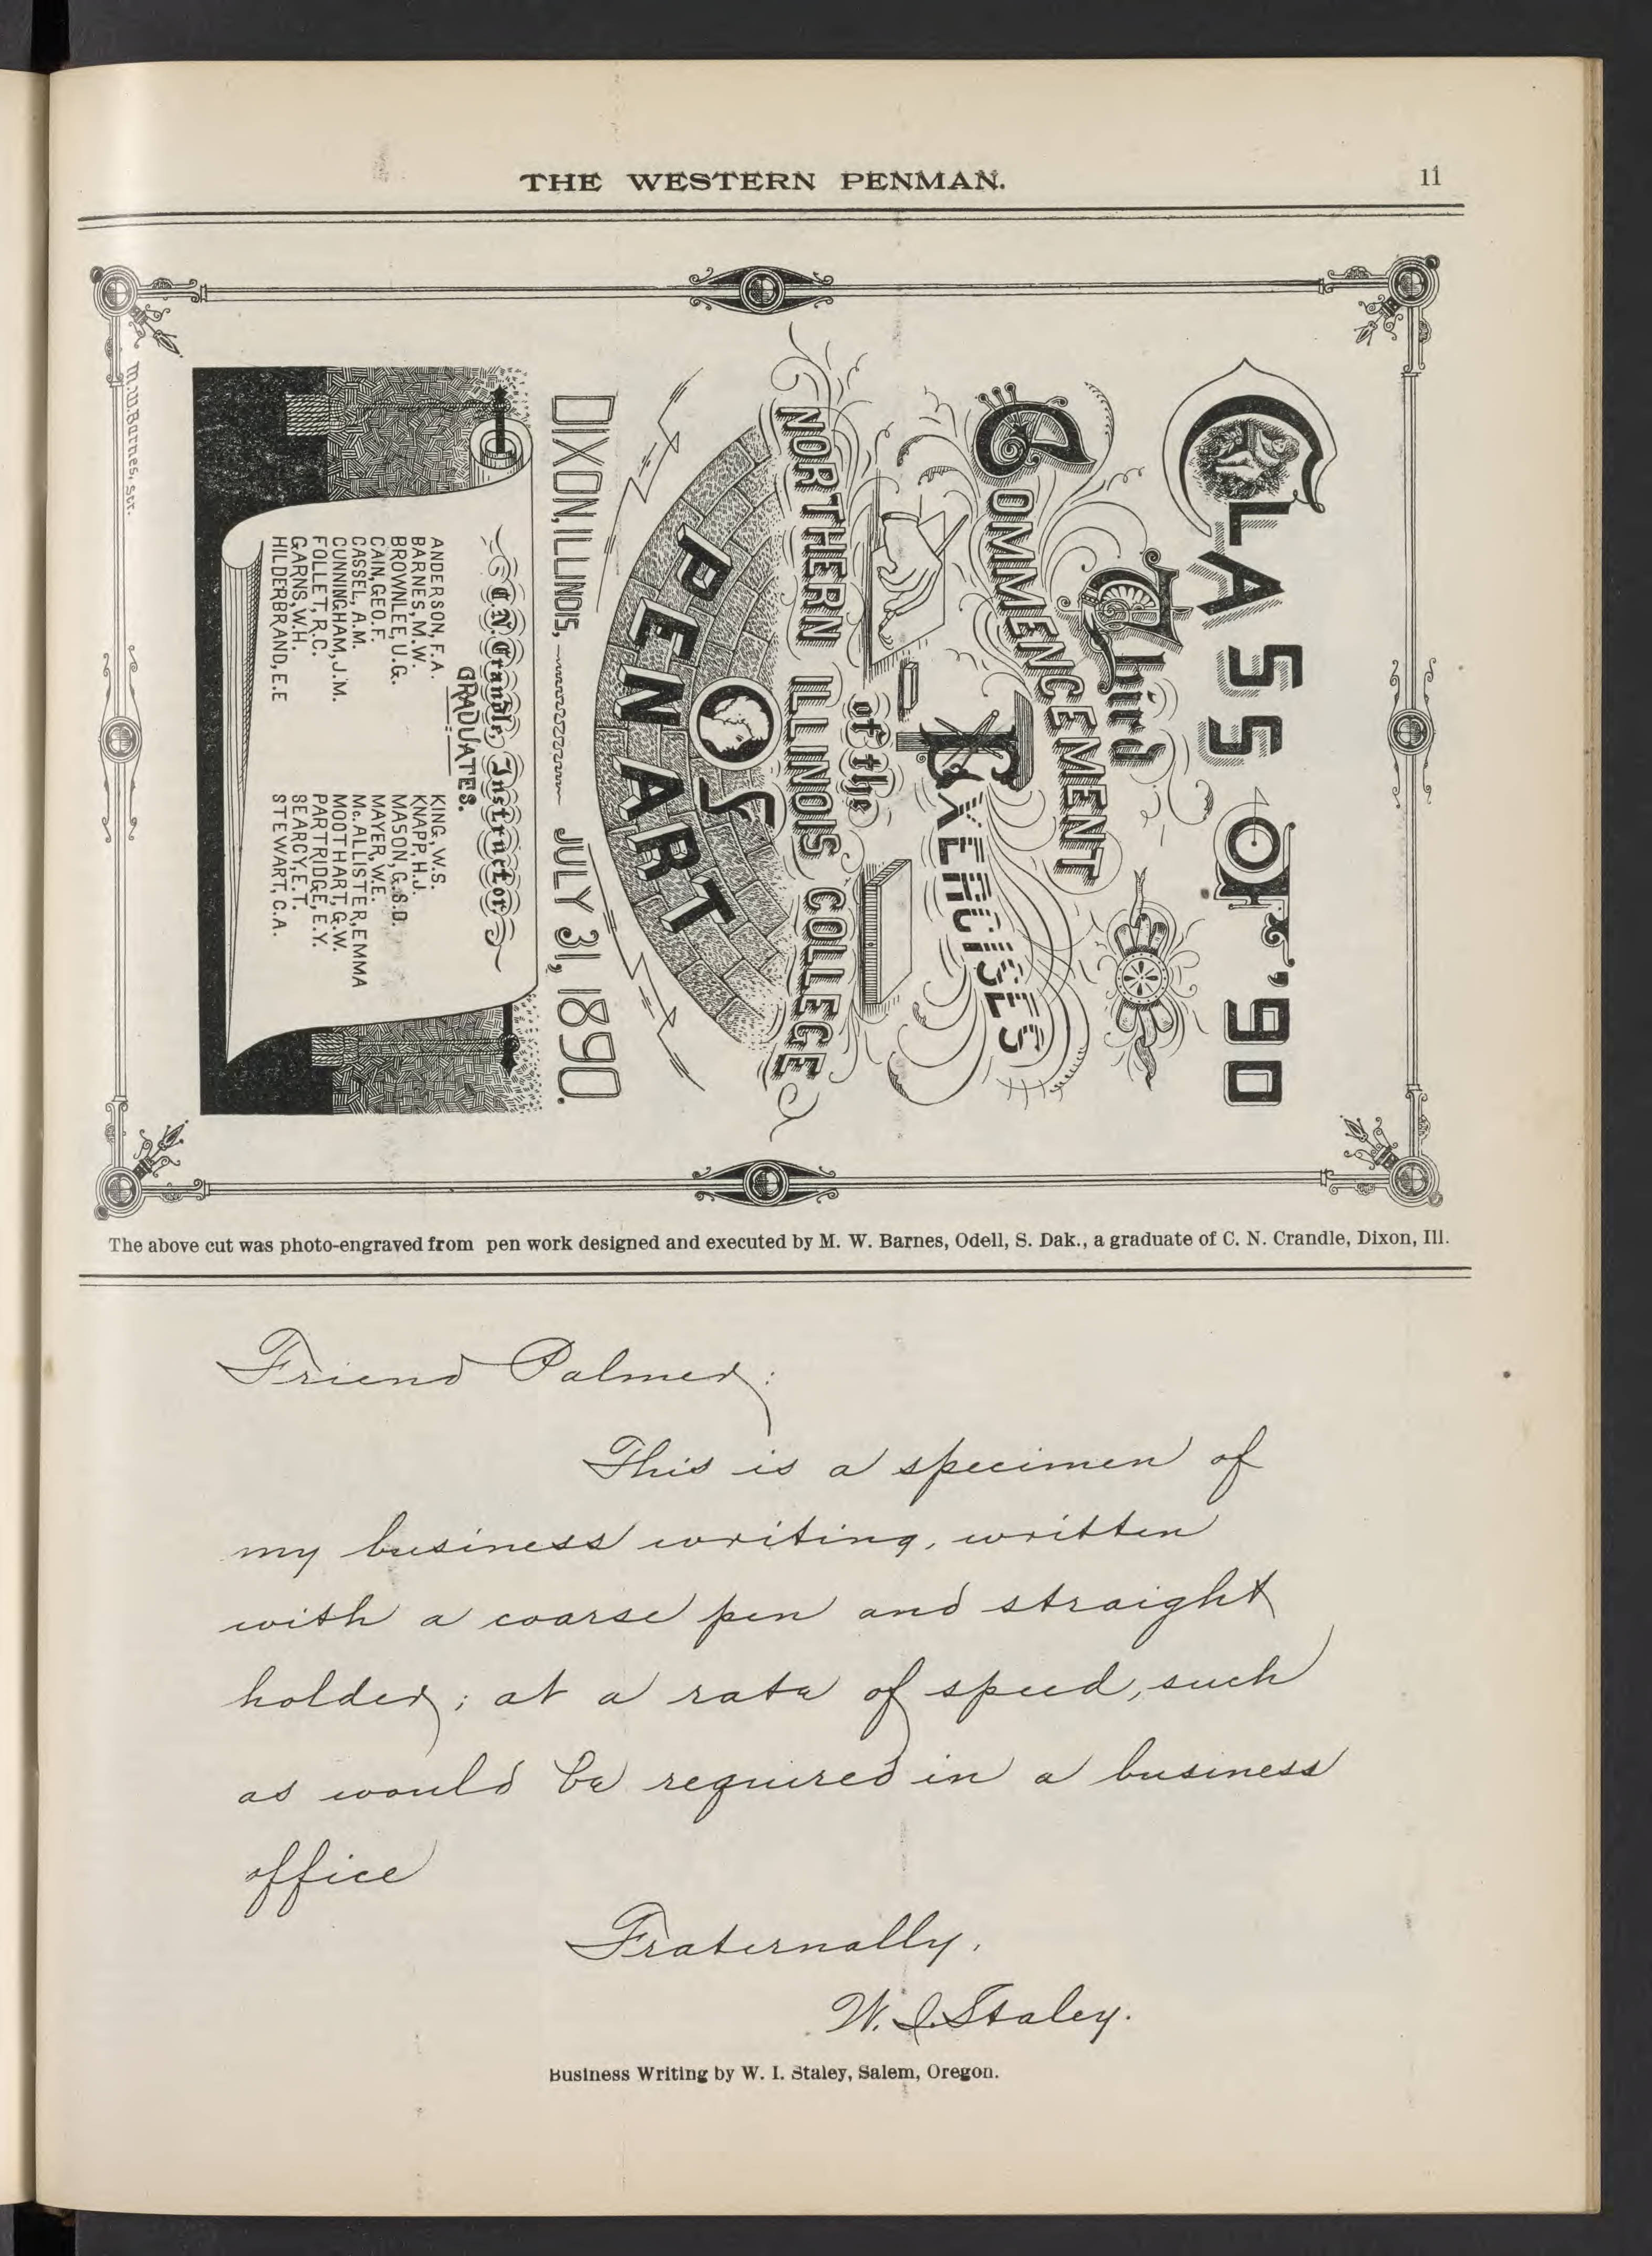 THE WESTERN PENMAN.
11
CLASS OF '90
Third
COMMENCEMENT
EXERCISES
of the
NORTHERN ILLINOIS COLLEGE
OF
PEN ART
DIXON, ILLINOIS, JULY 31, 1890.
C.N. Crandle, Instructor
GRADUATES.
ANDERSON, F.A.
BARNES, M.W.
BROWNLEE, U.G.
CAIN, GEO.F.
CASSEL, A.M.
CUNNINGHAM, J.M.
FOLLET, R.C.
GARNS, W.H.
HILDERBRAND, E.E
KING, W.S.
KNAPP, H.J.
MASON, G.S.D.
MAYER, W.E.
Mc.ALLISTER, EMMA
MOOTHART, G.W.
PARTRIDGE, E.Y.
SEARCY, E.T.
STEWART, C.A.
M.W.Barnes,
The above cut was photo-engraved from pen work designed and executed by M. W. Barnes, Odell, S. Dak., a graduate of C. N. Crandle, Dixon, Ill.
Friend Palmer:
This is a specimen of
my business writing, written
with a coarse pen and straight
holder; at a rate of speed, such
as would be required in a business
office
Fraternally,
W. I. Staley.
Business Writing by W. I. Staley, Salem, Oregon.